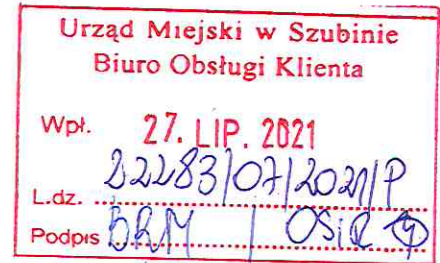 Urząd Miejski w Szubinie
Biuro Obsługi Klienta
Wpł. 27. LIP. 2021
L.dz. 22283/07/2021/P
Podpis BRM | OSiR